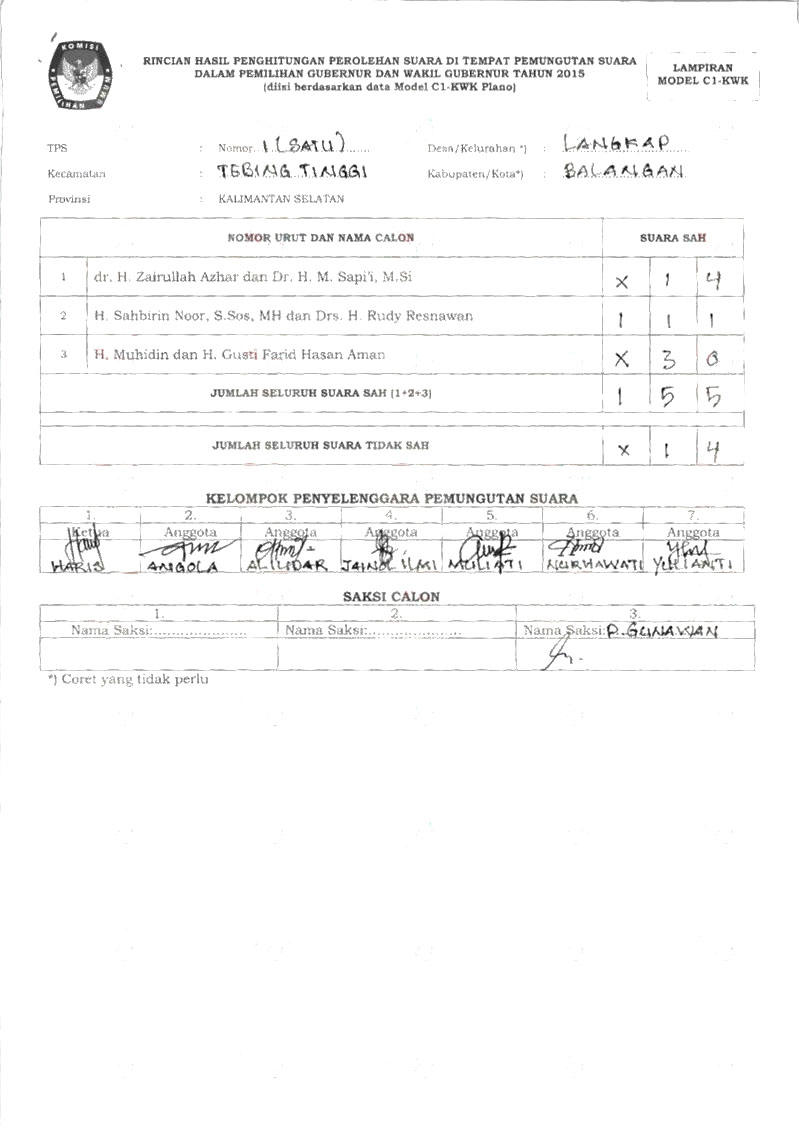 KOMISI
PEMILIHAN UMUM
RINCIAN HASIL PENGHITUNGAN PEROLEHAN SUARA DI TEMPAT PEMUNGUTAN SUARA
DALAM PEMILIHAN GUBERNUR DAN WAKIL GUBERNUR TAHUN 2015
(diisi berdasarkan data Model C1-KWK Plano)
LAMPIRAN
MODEL C1-KWK
TPS : Nomor 1 (SATU) Desa/Kelurahan *) : LANGKAP
Kecamatan : TEBING TINGGI Kabupaten/Kota*) : BALANGAN
Provinsi : KALIMANTAN SELATAN
NOMOR URUT DAN NAMA CALON SUARA SAH
1 dr. H. Zairullah Azhar dan Dr. H. M. Sapi'i, M.Si X 1 4
2 H. Sahbirin Noor, S.Sos, MH dan Drs. H. Rudy Resnawan 1 1 1
3 H. Muhidin dan H. Gusti Farid Hasan Aman X 3 0
JUMLAH SELURUH SUARA SAH (1+2+3) 1 5 5
JUMLAH SELURUH SUARA TIDAK SAH X 1 4
KELOMPOK PENYELENGGARA PEMUNGUTAN SUARA
1. 2. 3. 4. 5. 6. 7.
Ketua Anggota Anggota Anggota Anggota Anggota Anggota
HARIS ANGOLA ALIUDAR JAINOL ILMI MULIATI NURHAWATI YULIANTI
SAKSI CALON
1. 2. 3.
Nama Saksi:..................... Nama Saksi:..................... Nama Saksi: P. GUNAWAN
*) Coret yang tidak perlu